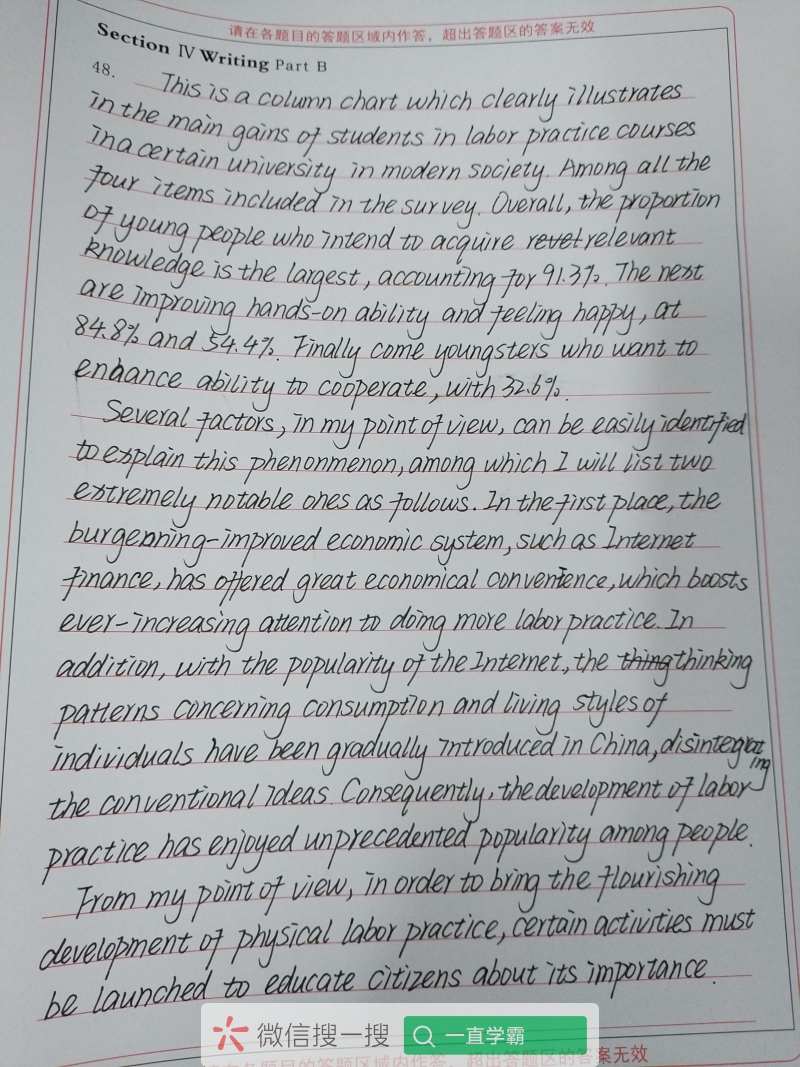 请在各题目的答题区域内作答，超出答题区的答案无效
Section Ⅳ Writing Part B
48. This is a column chart which clearly illustrates
in the main gains of students in labor practice courses
in a certain university in modern society. Among all the
four items included in the survey. Overall, the proportion
of young people who intend to acquire revel relevant
knowledge is the largest, accounting for 91.3%. The next
are improving hands-on ability and feeling happy, at
84.8% and 54.4%. Finally come youngsters who want to
enhance ability to cooperate, with 32.6%.
Several factors, in my point of view, can be easily identified
to explain this phenonmenon, among which I will list two
extremely notable ones as follows. In the first place, the
burgeoning-improved economic system, such as Internet
finance, has offered great economical convenience, which boosts
ever-increasing attention to doing more labor practice. In
addition, with the popularity of the Internet, the thing thinking
patterns concerning consumption and living styles of
individuals have been gradually introduced in China, disintegrating
the conventional ideas. Consequently, the development of labor
practice has enjoyed unprecedented popularity among people.
From my point of view, in order to bring the flourishing
development of physical labor practice, certain activities must
be launched to educate citizens about its importance.
微信搜一搜 一直学霸
超出答题区的答案无效